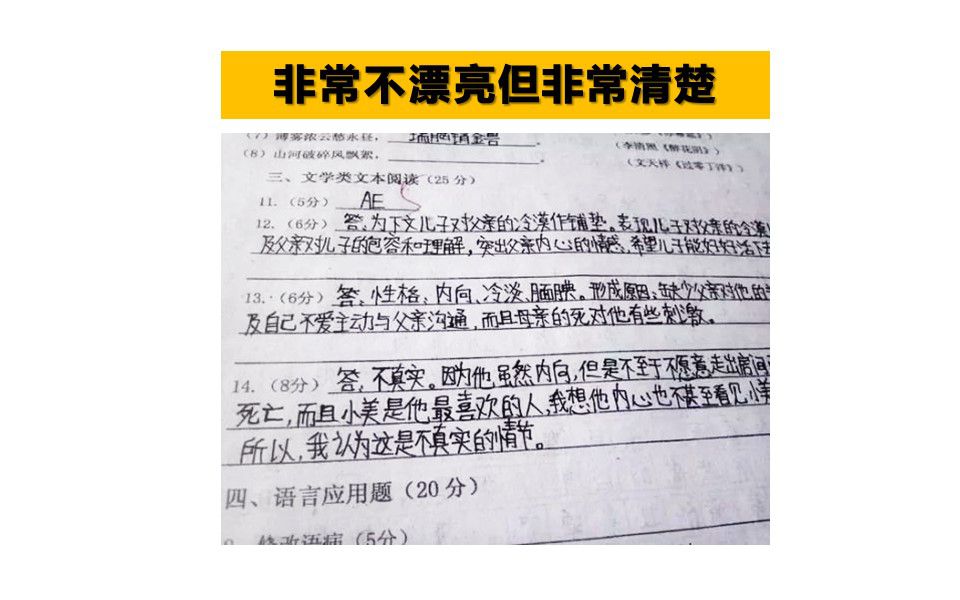 非常不漂亮但非常清楚
(7) 薄雾浓云愁永昼, 瑞脑销金兽。
(李清照《醉花阴》)
(8) 山河破碎风飘絮,
(文天祥《过零丁洋》)
三、文学类文本阅读(25分)
11. (5分) AE
12. (6分) 答:为下文儿子对父亲的冷漠作铺垫。表现儿子对父亲的冷漠
及父亲对儿子的包容和理解,突出父亲内心的情感,希望儿子能好好活下去
13. (6分) 答:性格:内向、冷淡、腼腆。形成原因:缺少父亲对他的
及自己不爱主动与父亲沟通,而且母亲的死对他有些刺激。
14. (8分) 答:不真实。因为他虽然内向,但是不至于不愿意走出房间
死亡,而且小美是他最喜欢的人,我想他内心也不甚至看见小美
所以,我认为这是不真实的情节。
四、语言应用题(20分)
修改语病(5分)